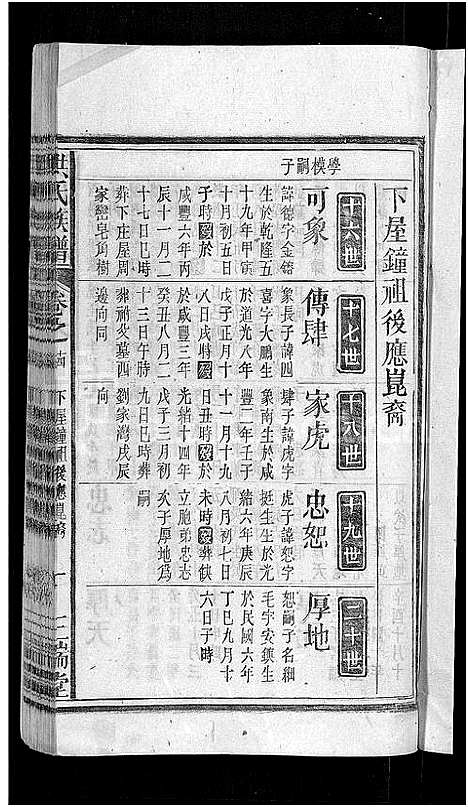 下屋鐘祖後應崑裔
學模嗣子
十六世
可象
諱德字金鎔
生於乾隆五
十九年甲寅
十月初五日
子時歿於
咸豐六年丙
辰十一月二
十七日巳時
葬下庄屋周
家巒皂角樹
十七世
傳肆
象長子諱四
喜字大鵬生
於道光八年
戊子正月十
八日戌時歿
癸丑八月二
咸豐三年
十三日午時
葬祖父墓四
邊向同
十八世
家虎
肆子諱虎字
象南生於咸
豐二年壬子
十一月十九
日丑時歿於
光緒十四年
戊子三月初
九日巳時葬
劉家灣戌辰
向
十九世
忠恕
虎子諱恕字
挺生生於光
緒六年庚辰
八月初七日
未時歿葬缺
立胞弟忠志
次子厚地為
嗣
二十世
厚地
恕嗣子名綱
毛字安鎮生
於民國六年
丁巳九月十
六日子時
洪氏族譜
卷之
下屋鐘祖後應崑裔